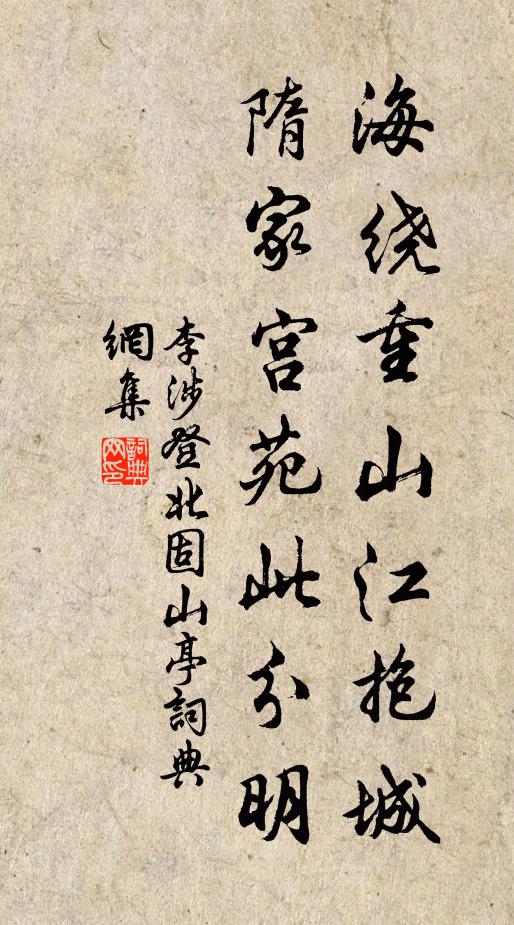 海绕重山江抱城
隋家宫苑此分明
李涉登北固山亭詞典
網集
詞典网印